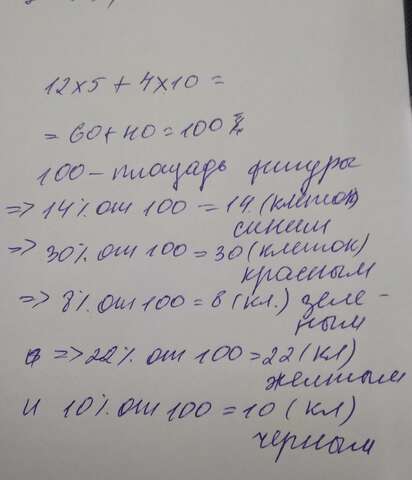 12x5 + 4x10 =
= 60 + 40 = 100
100 - площадь фигуры
=> 14% от 100 = 14 (клеток)
синим
=> 30% от 100 = 30 (клеток)
красным
=> 8% от 100 = 8 (кл.) зеле-
ным
=> 22% от 100 = 22 (кл)
желтым
и 10% от 100 = 10 (кл)
черным